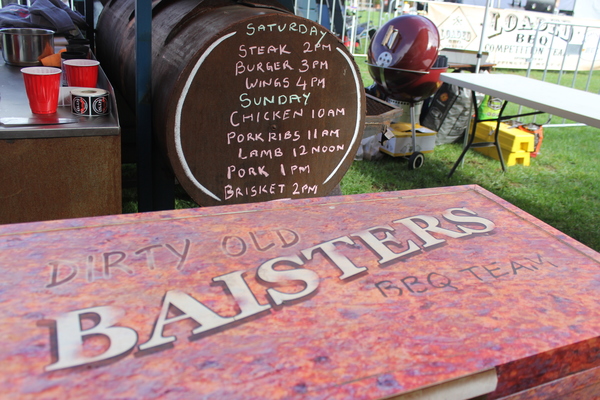 SATURDAY
STEAK 2PM
BURGER 3PM
WINGS 4PM
SUNDAY
CHICKEN 10AM
PORK RIBS 11AM
LAMB 12 NOON
PORK 1PM
BRISKET 2PM
LOADED
BBQ
COMPETITION TEAM
DIRTY OLD
BAISTERS
BBQ TEAM